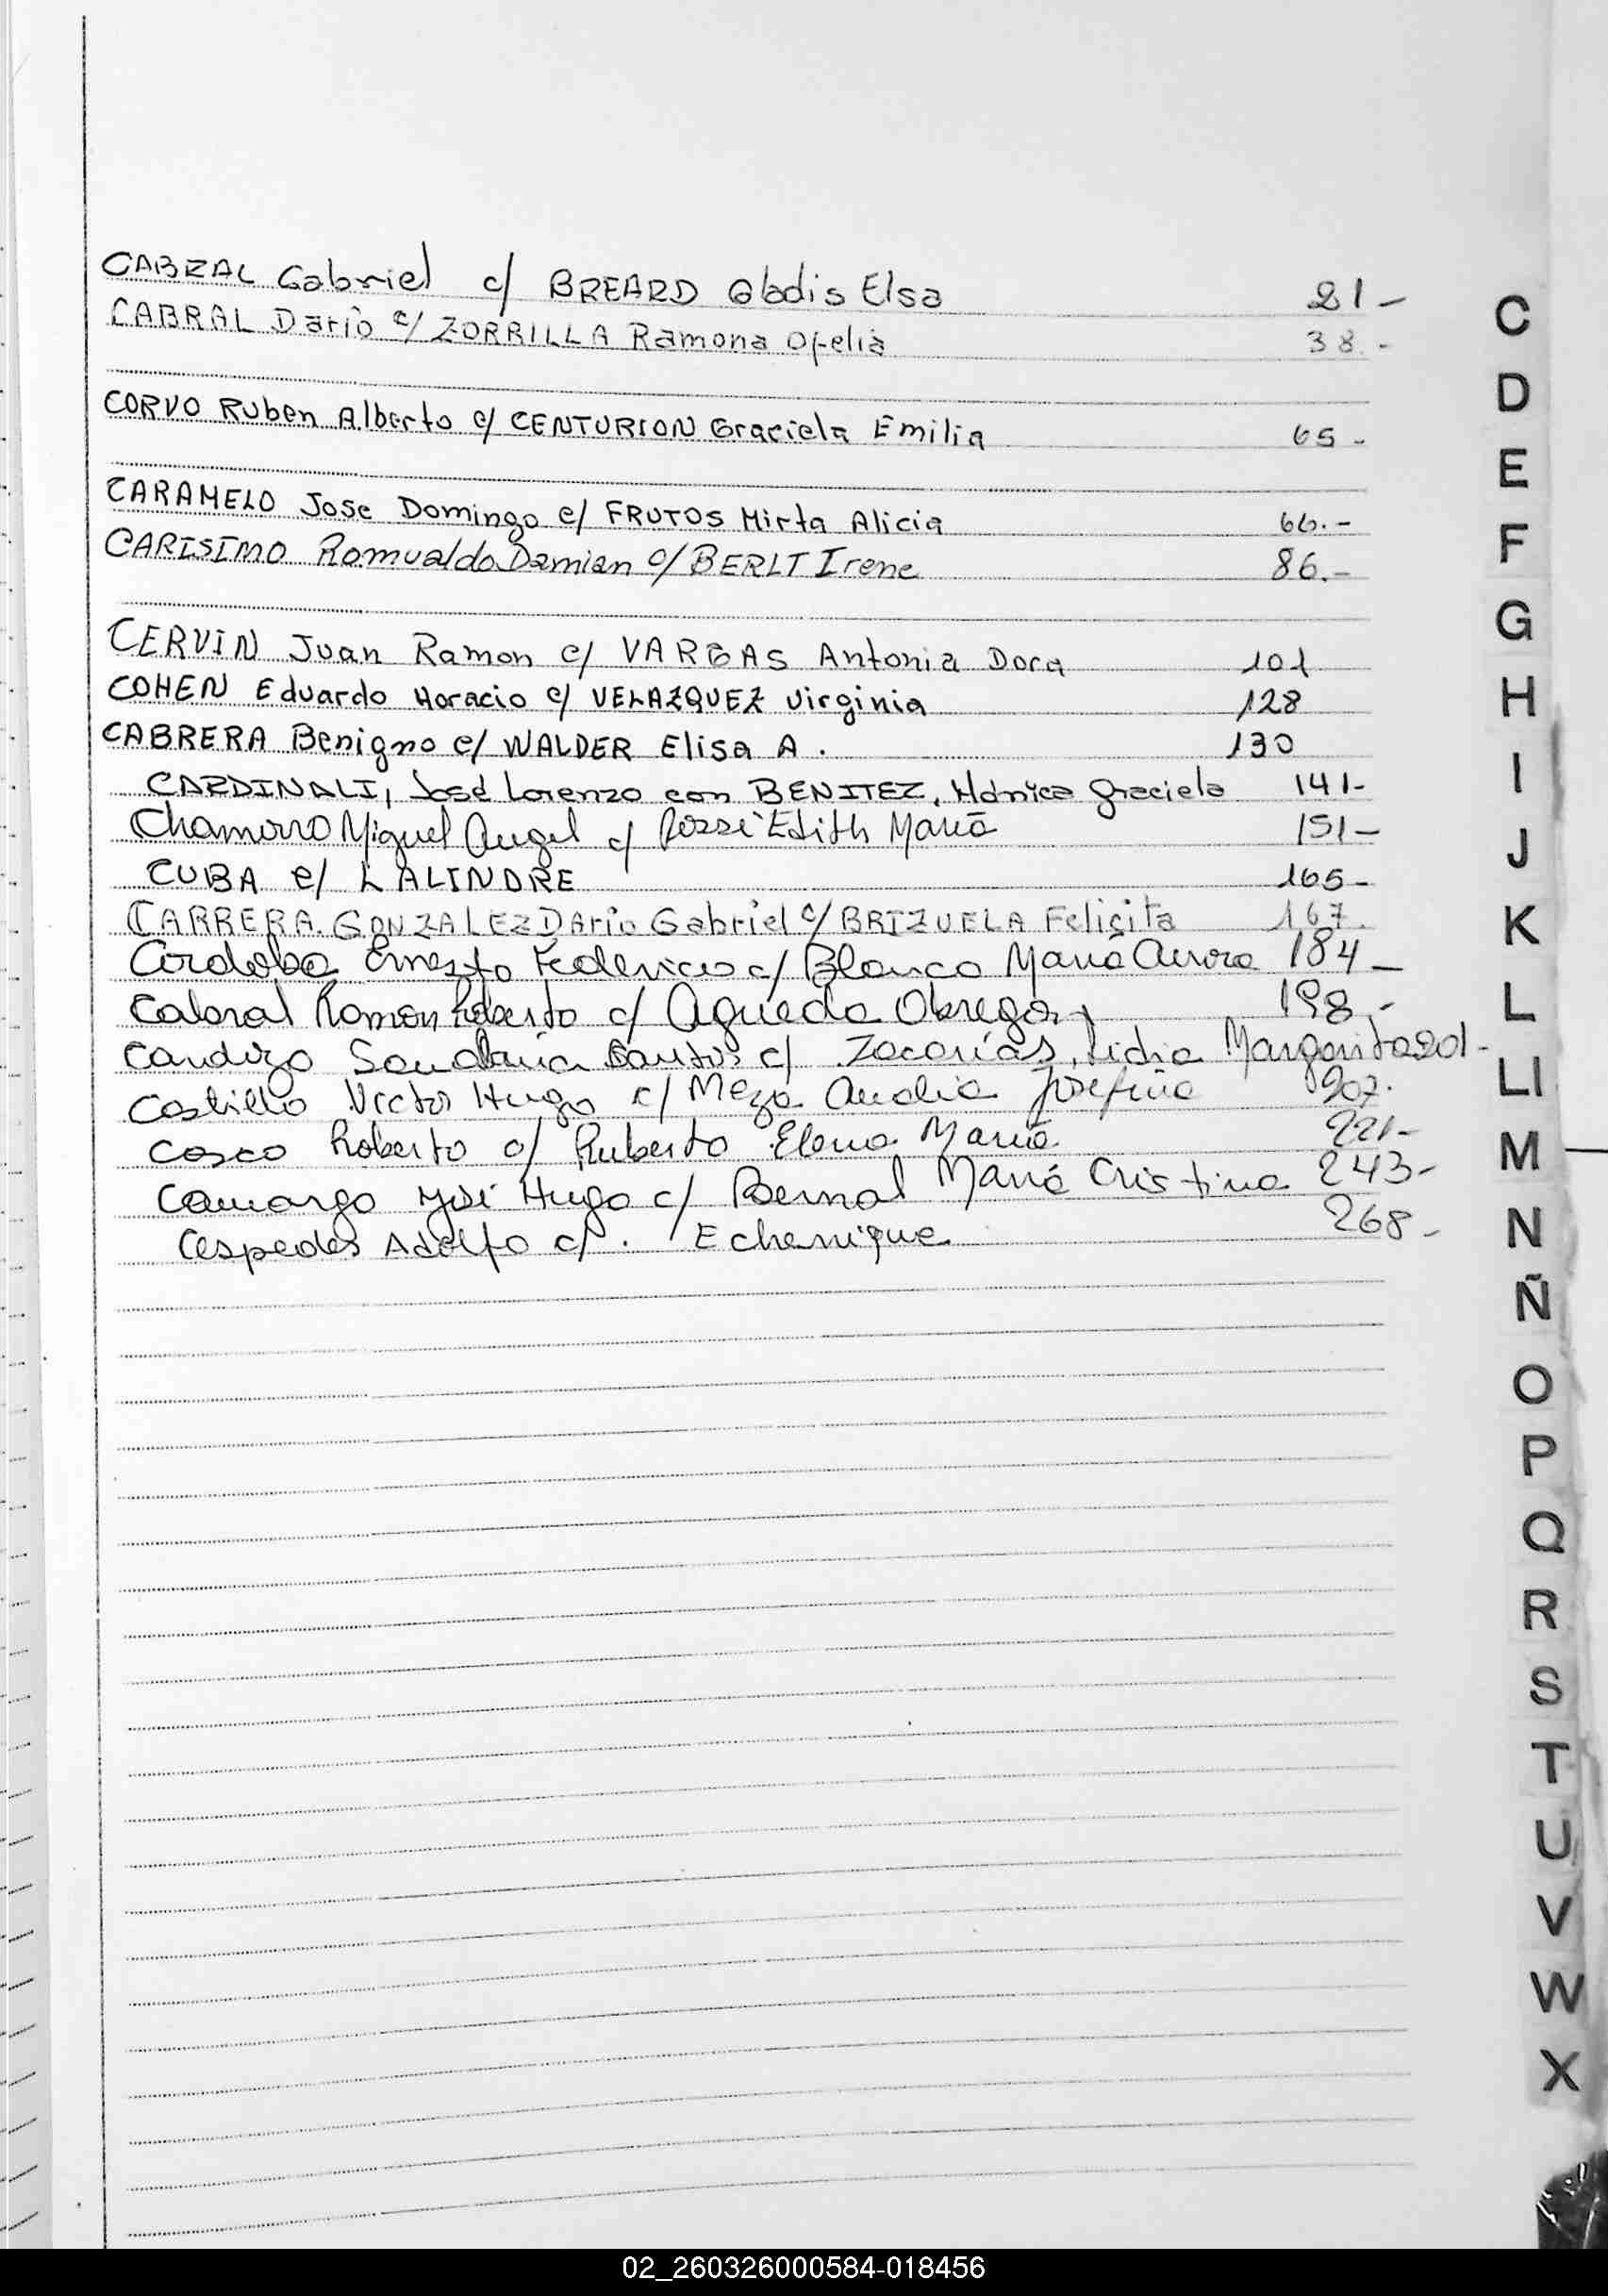 CABRAL Gabriel c/ BREARD Gladis Elsa 21-
CABRAL Dario c/ ZORRILLA Ramona Ofelia 38.-
CORVO Ruben Alberto c/ CENTURION Graciela Emilia 65-
CARAMELO Jose Domingo c/ FRUTOS Mirta Alicia 66.-
CARISIMO Romualdo Damian c/ BERLT Irene 86.-
CERVIN Juan Ramon c/ VARGAS Antonia Dora 101
COHEN Eduardo Horacio c/ VELAZQUEZ Virginia 128
CABRERA Benigno c/ WALDER Elisa A. 130
CARDINALI, José Lorenzo con BENITEZ, Mónica Graciela 141-
Chamorro Miguel Angel c/ Edith María 151-
CUBA c/ LALINDRE 165-
CARRERA GONZALEZ Dario Gabriel c/ BRIZUELA Felicita 167.
Córdoba Ernesto Federico c/ Blanco María Aurora 184-
Cabral Ramon Roberto c/ Agueda Obregon 198.-
Santos c/ Zacarías, Lidia Margarita 201-
Castillo Victor Hugo c/ Meza Analia Josefina 207.
Cosco Roberto c/ Ruberto Elena María 221-
Camargo José Hugo c/ Bernal María Cristina 243-
Cespedes Adolfo c/. Echenique 268-
C
D
E
F
G
H
I
J
K
L
LI
M
N
Ñ
O
P
Q
R
S
T
U
V
W
X
02_260326000584-018456